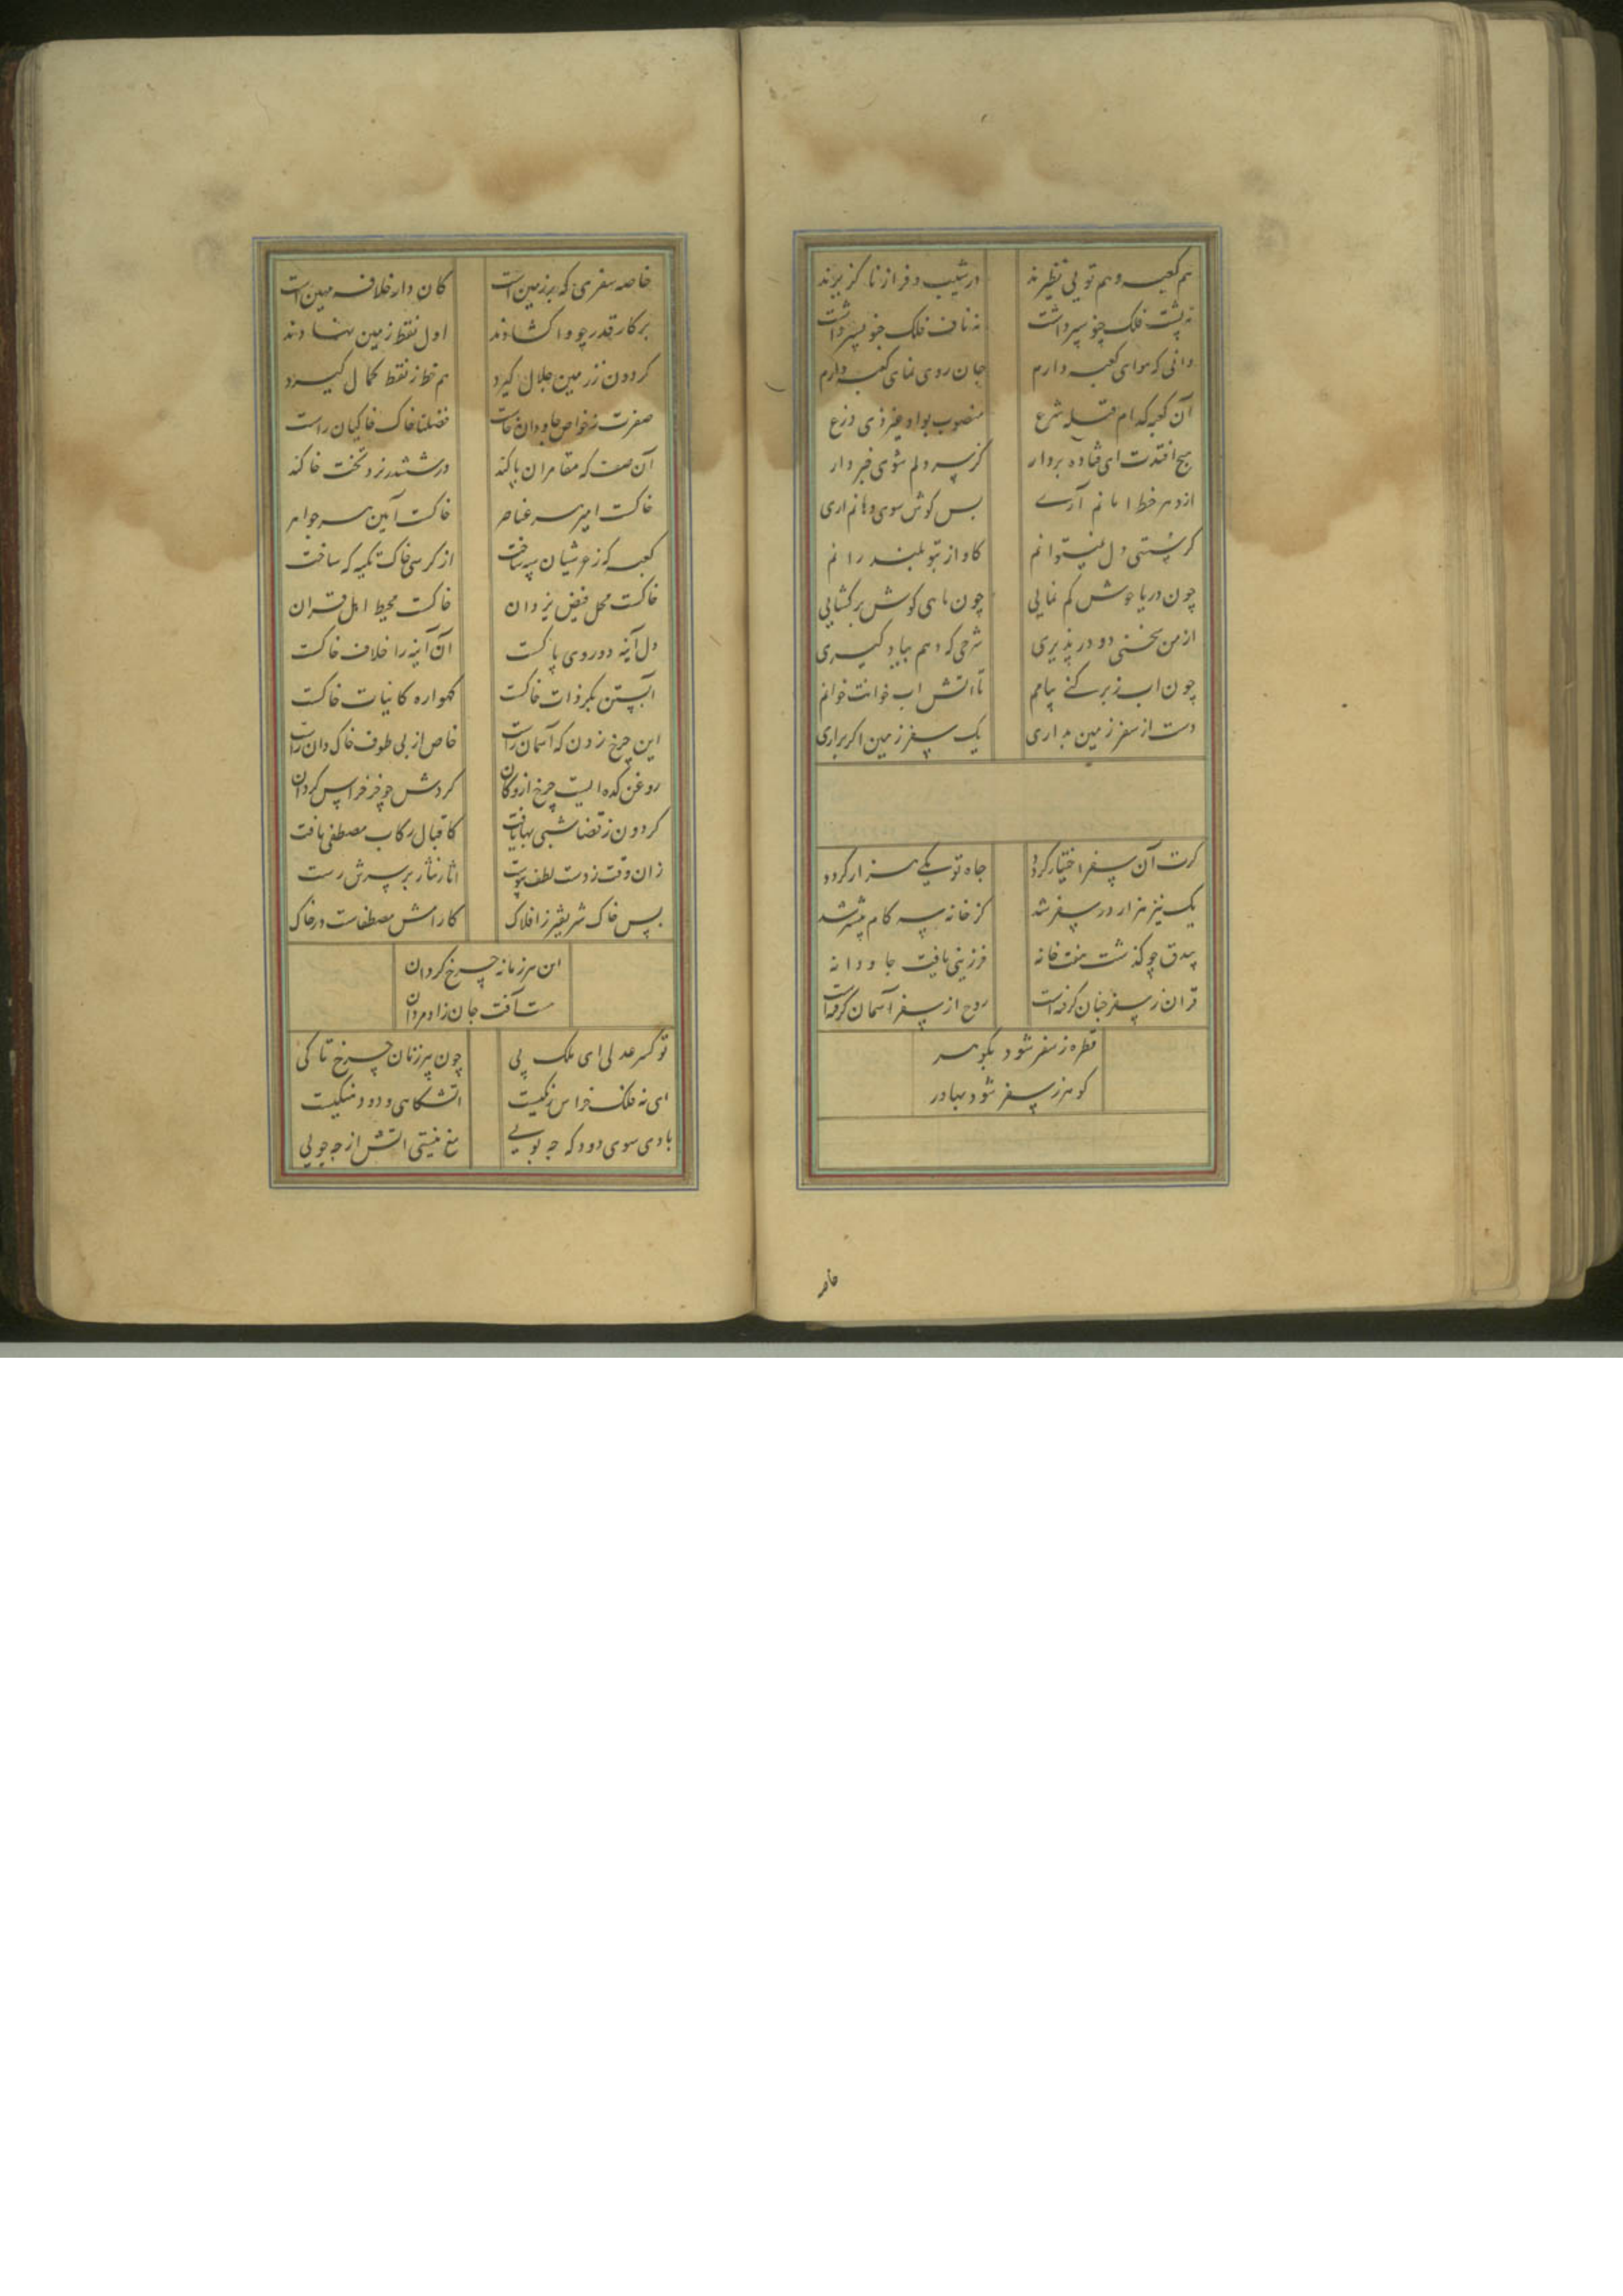 هم کعبه و هم تو بی نظیرند در شیب و فراز ناگزیرند
نه پشت فلک چنو پسر داشت نه ناف فلک چنو پسر داشت
دانی که هوای کعبه دارم جان روی نمای کعبه دارم
آن کعبه که ام قبله شرع منصوب بواد غیر ذی زرع
هیچ افتدت ای فتاده بردار کز سر دلم شوی خبردار
از دهر خط امانم آری بس گوش سوی دهانم آری
کر پستی دل نمیتوانم کاواز بتو بلند رانم
چون دریا جوش کم نمایی چون ماهی گوش برگشایی
از من سخنی دو در پذیری شرحی که دهم بیاد گیری
چون اب زبر کنی پیامم تا اتش اب خوانت خوانم
دست از سفر زمین بداری یک سفر زمین اکر براری
کرت آن سفر اختیار گردد جاه تو یکی هزار گردد
یک نیز هزار در سفر شد کز خانه سه کام پیشتر شد
بیدق چو گذشت هفت خانه فرزینی یافت جاودانه
قران ز سفر جنان گرفته است روح از سفر آسمان گرفته است
قطره ز سفر شود بگوهر
گوهر ز سفر شود بهادر
خاصه
خاصه سفری که بر زمین است کان دار خلافه مهین است
پرکار قدر چو وا گشادند اول نقط زمین نهادند
گردون ز زمین جلال گیرد هم خط ز نقط کمال گیرد
صفرت ز خواص جاودان خاست فضلتا خاک خاکیان راست
آن صف که مقامران پاکند در ششدر نرد تخت خاکند
خاکست امیر سر عناصر خاکست آمین سر جواهر
کعبه که ز عرشیان سپه ساخت از کرسی خاک تکیه که ساخت
خاکست محل فیض یزدان خاکست محیط اهل قران
دل آینه دو روی پاکست آن آینه را خلاف خاکست
آبستن بکر ذات خاکست گهواره کاینات خاکست
این چرخ زدن که آسمان راست خاص از پی طوف خاک دان راست
روغن کده ایست چرخ از وکان گردش چو خر خراس گردان
گردون ز قضا شبی بها یافت کاقبال رکاب مصطفی یافت
زان وقت ز دست لطف پیوست اثار نثار بر سرش رست
پس خاک شریفتر ز افلاک کارامش مصطفاست در خاک
این هر زمانه چرخ گردان
ست آفت جان زاد مردان
تو کسر عدلی ای ملک پی چون پیرزنان چرخ تا کی
ای نه فلک خراس رنگیست اتشکاهی و دود منگیست
بادی سوی دودکه چه پویی مغ نیستی اتش از چه جویی